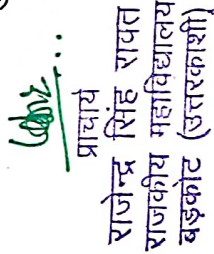 प्राचार्य
राजेन्द्र सिंह रावत
राजकीय महाविद्यालय
बड़कोट (उत्तरकाशी)